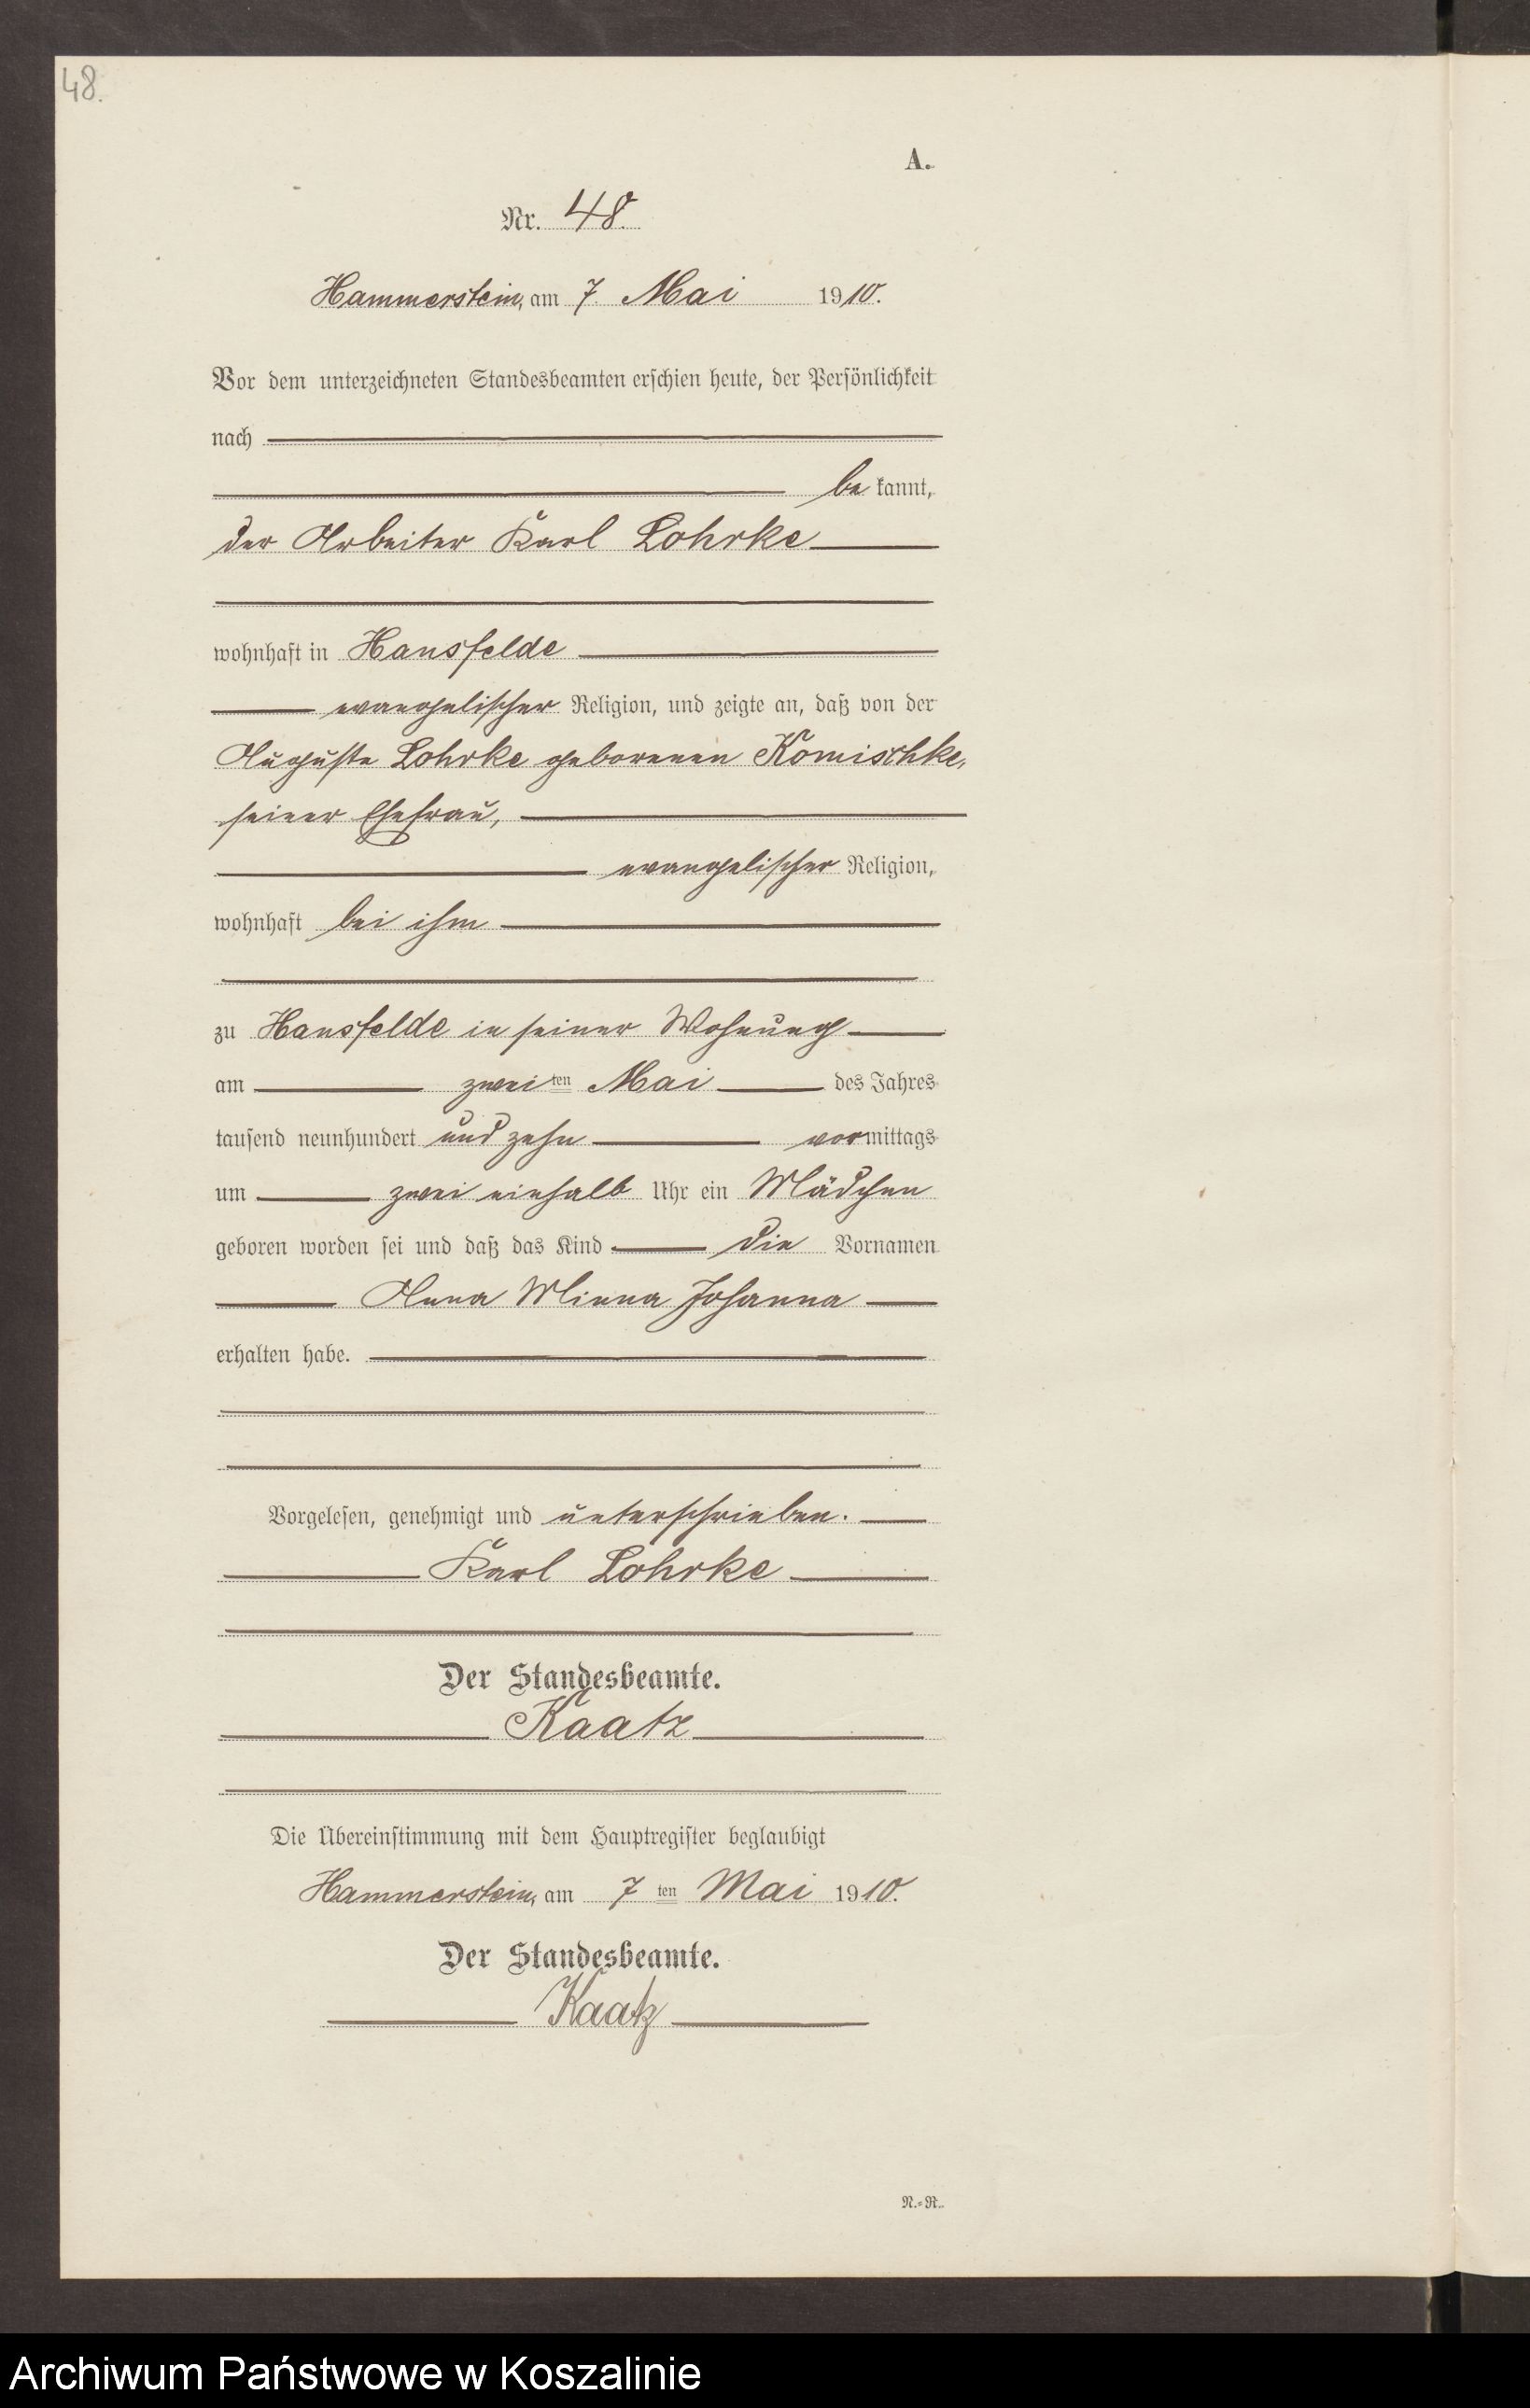 48.
A.
Nr. 48.
Hammerstein, am 7. Mai 1910.
Vor dem unterzeichneten Standesbeamten erschien heute, der Persönlichkeit
nach
bekannt,
der Arbeiter Karl Lohrke
wohnhaft in Hansfelde
evangelischer Religion, und zeigte an, daß von der
Auguste Lohrke geborenen Komischke,
seiner Ehefrau,
evangelischer Religion,
wohnhaft bei ihm
zu Hansfelde in seiner Wohnung
am zweiten Mai des Jahres
tausend neunhundert und zehn vormittags
um zwei einhalb Uhr ein Mädchen
geboren worden sei und daß das Kind die Vornamen
Anna Minna Johanna
erhalten habe.
Vorgelesen, genehmigt und unterschrieben.
Karl Lohrke
Der Standesbeamte.
Kaatz
Die Übereinstimmung mit dem Hauptregister beglaubigt
Hammerstein, am 7ten Mai 1910.
Der Standesbeamte.
Kaatz
N.=R.
Archiwum Państwowe w Koszalinie